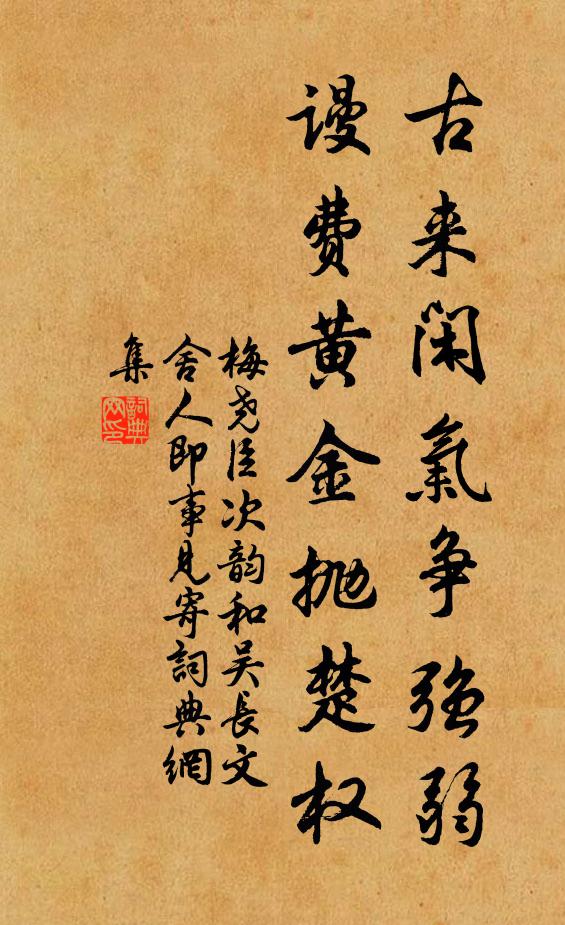 古来闲氣争強弱
谩费黄金抛楚权
梅尧臣次韵和吴长文
舍人即事见寄詞典網
集
詞典網印